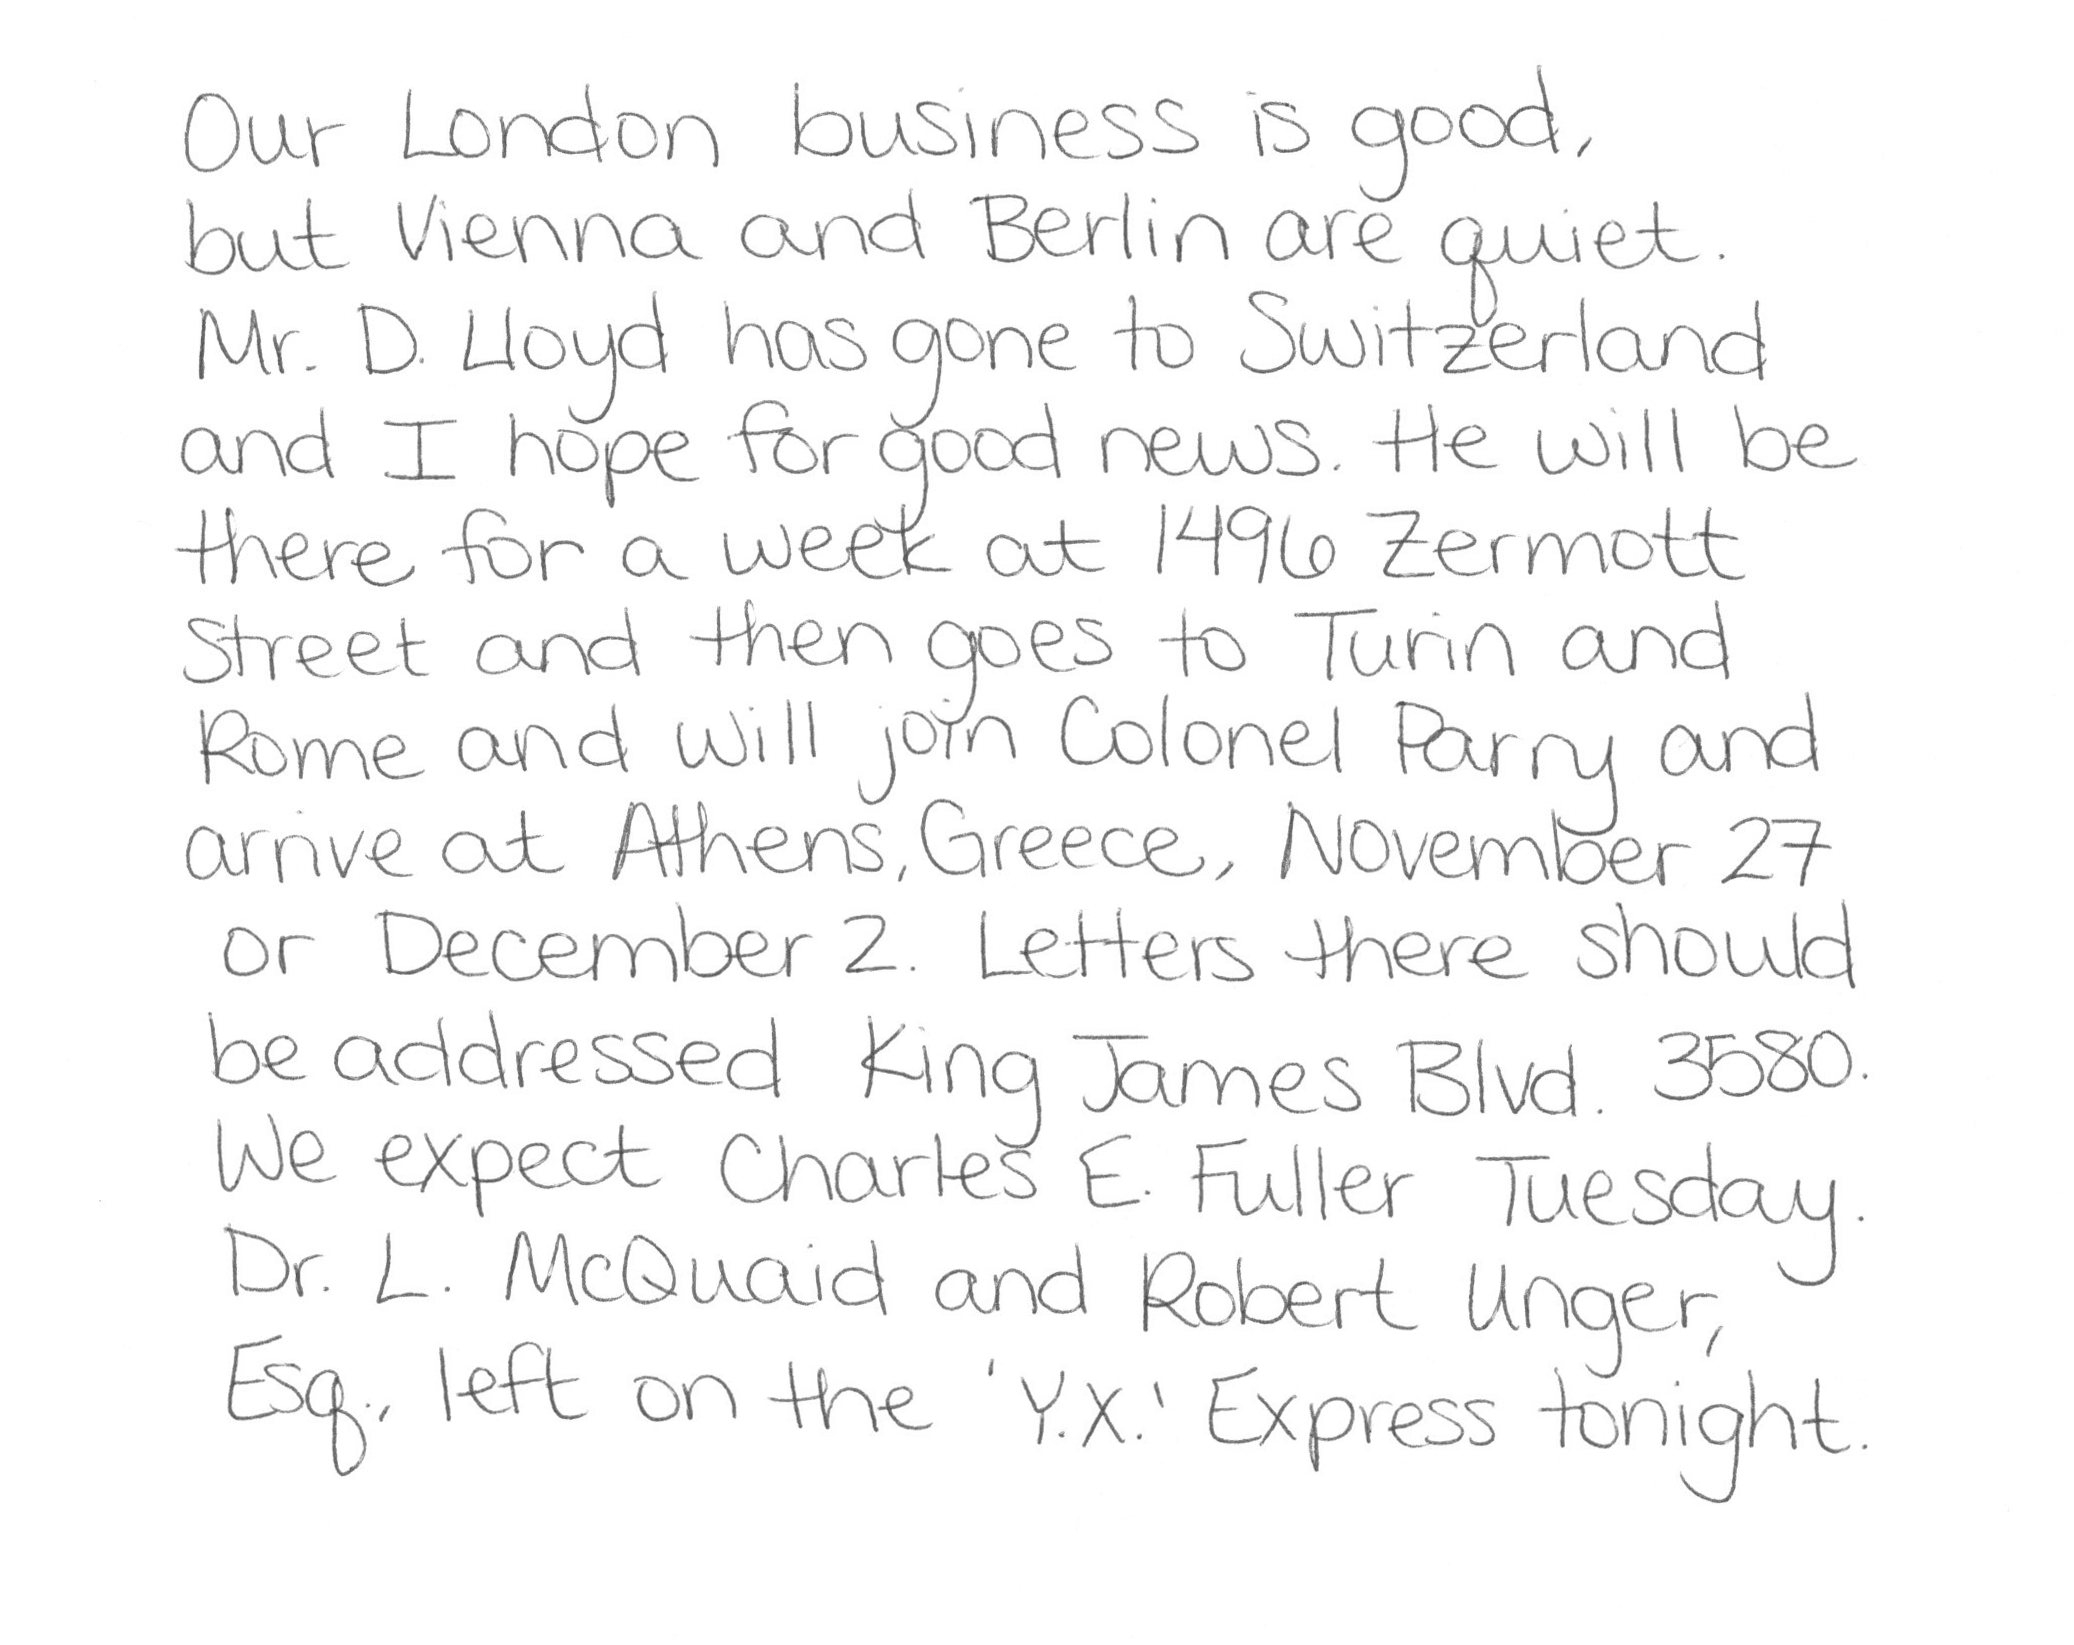 Our London business is good,
but Vienna and Berlin are quiet.
Mr. D. Lloyd has gone to Switzerland
and I hope for good news. He will be
there for a week at 1496 Zermott
Street and then goes to Turin and
Rome and will join Colonel Parry and
arrive at Athens, Greece, November 27
or December 2. Letters there should
be addressed King James Blvd. 3580.
We expect Charles E. Fuller Tuesday.
Dr. L. McQuaid and Robert Unger,
Esq., left on the 'Y.X.' Express tonight.